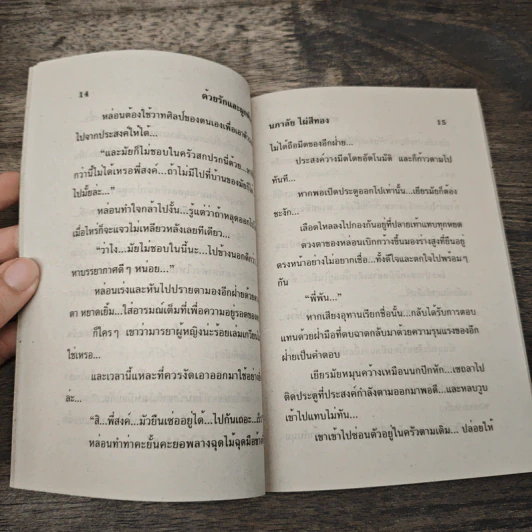 14
ด้วยรักและ
หล่อนต้องใช้วาทศิลป์ของตนเองเพื่อเอา
ไปจากประสงค์ให้ได้...
"และมัยก็ไม่ชอบในครัวสกปรกนี่ด้วย...
กว่านี้ไม่ได้เหรอพี่สงค์...ถ้าไม่มีไปที่บ้านของมัยก็
ไปมั้ยล่ะ..."
หล่อนทำใจกล้าไปงั้น...รู้แต่ว่าถ้าหลุดออก
เมื่อไหร่ก็จะแจวไม่เหลียวหลังเลยทีเดียว...
"ว่าไง...มัยไม่ชอบในนี้นะ...ไปข้างนอกดีกว่า
หาบรรยากาศดี ๆ หน่อย..."
หล่อนเร่งและหันไปปรายตามองอีกฝ่ายด้วย
ตา หยาดเยิ้ม...ใส่อารมณ์เต็มที่เพื่อความอยู่รอดของ
ก็ใคร ๆ เขาว่ามารยาผู้หญิงน่ะร้อยเล่มเกวียน
ใช่เหรอ...
และเวลานี้แหละที่ควรงัดเอาออกมาใช้อย่าง
ล่ะ...
"สิ...พี่สงค์...มัวยืนเซ่ออยู่ได้...ไปกันเถอะ...
หล่อนทำท่าคะยั้นคะยอพลางฉุดไม้ฉุดมือ
นภาลัย ไผ่สีทอง
15
ไม่ได้ถือมีดของอีกฝ่าย...
ประสงค์วางมีดโดยอัตโนมัติ และก็ก้าวตามไป
ทันที...
หากพอเปิดประตูออกไปเท่านั้น...เยียรมัยก็ต้อง
ชะงัก...
เลือดไหลลงไปกองกันอยู่ที่ปลายเท้าแทบทุกหยด
ดวงตาของหล่อนเบิกกว้างขึ้นมองร่างสูงที่ยืนอยู่
ตรงหน้าอย่างไม่อยากเชื่อ...ทั้งดีใจและตกใจไปพร้อม ๆ
กัน
"พี่พัน..."
หากเสียงอุทานเรียกชื่อนั้น...กลับได้รับการตอบ
แทนด้วยฝ่ามือที่ตบฉาดกลับมาด้วยความรุนแรงของอีก
ฝ่ายเป็นคำตอบ
เยียรมัยหมุนคว้างเหมือนนกปีกหัก...เซถลาไป
ติดประตูที่ประสงค์กำลังตามออกมาพอดี...และหลบวูบ
เข้าไปแทบไม่ทัน...
เขาเข้าไปซ่อนตัวอยู่ในครัวตามเดิม... ปล่อยให้